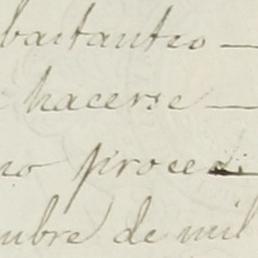 bastantes —
hacerse —
no proced
mbre de mil